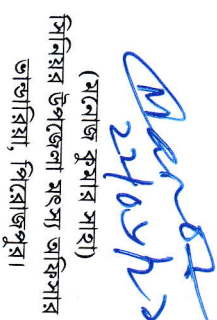 (মনোজ কুমার সাহা)
সিনিয়র উপজেলা মৎস্য অফিসার
ভান্ডারিয়া, পিরোজপুর।